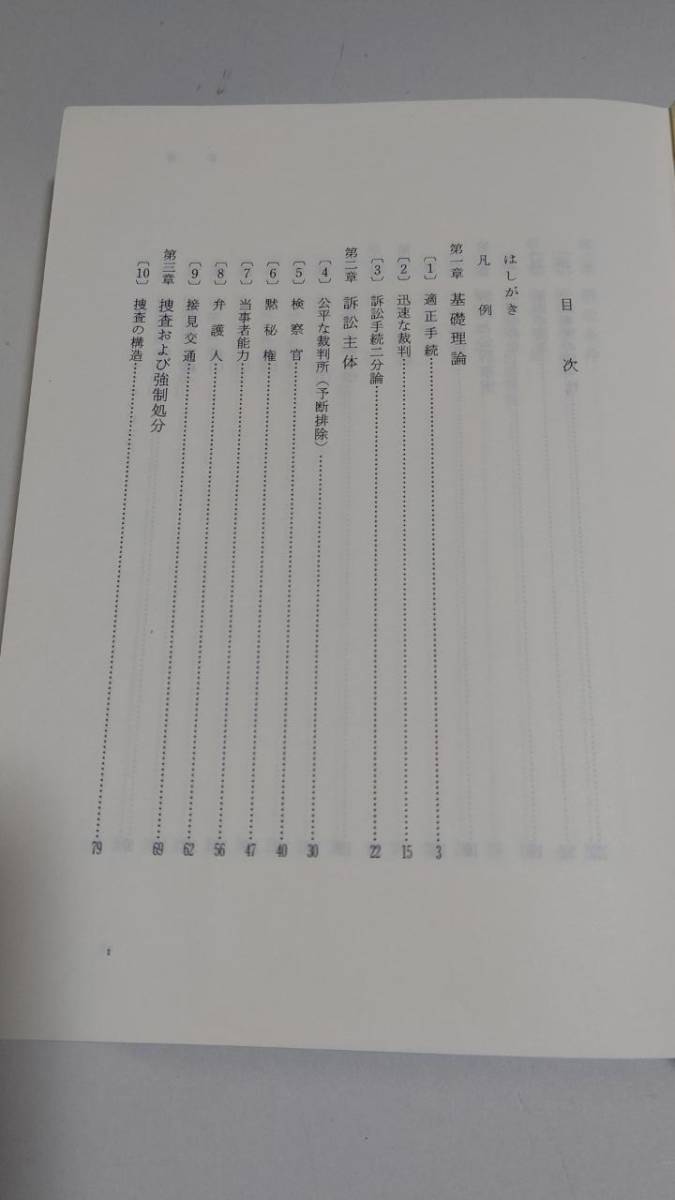 目次
はしがき
凡例
第一章 基礎理論
〔1〕 適正手続…………3
〔2〕 迅速な裁判…………15
〔3〕 訴訟手続二分論…………22
第二章 訴訟主体
〔4〕 公平な裁判所(予断排除)…………30
〔5〕 検察官…………40
〔6〕 黙秘権…………47
〔7〕 当事者能力…………56
〔8〕 弁護人…………62
〔9〕 接見交通…………69
第三章 捜査および強制処分
〔10〕 捜査の構造…………79